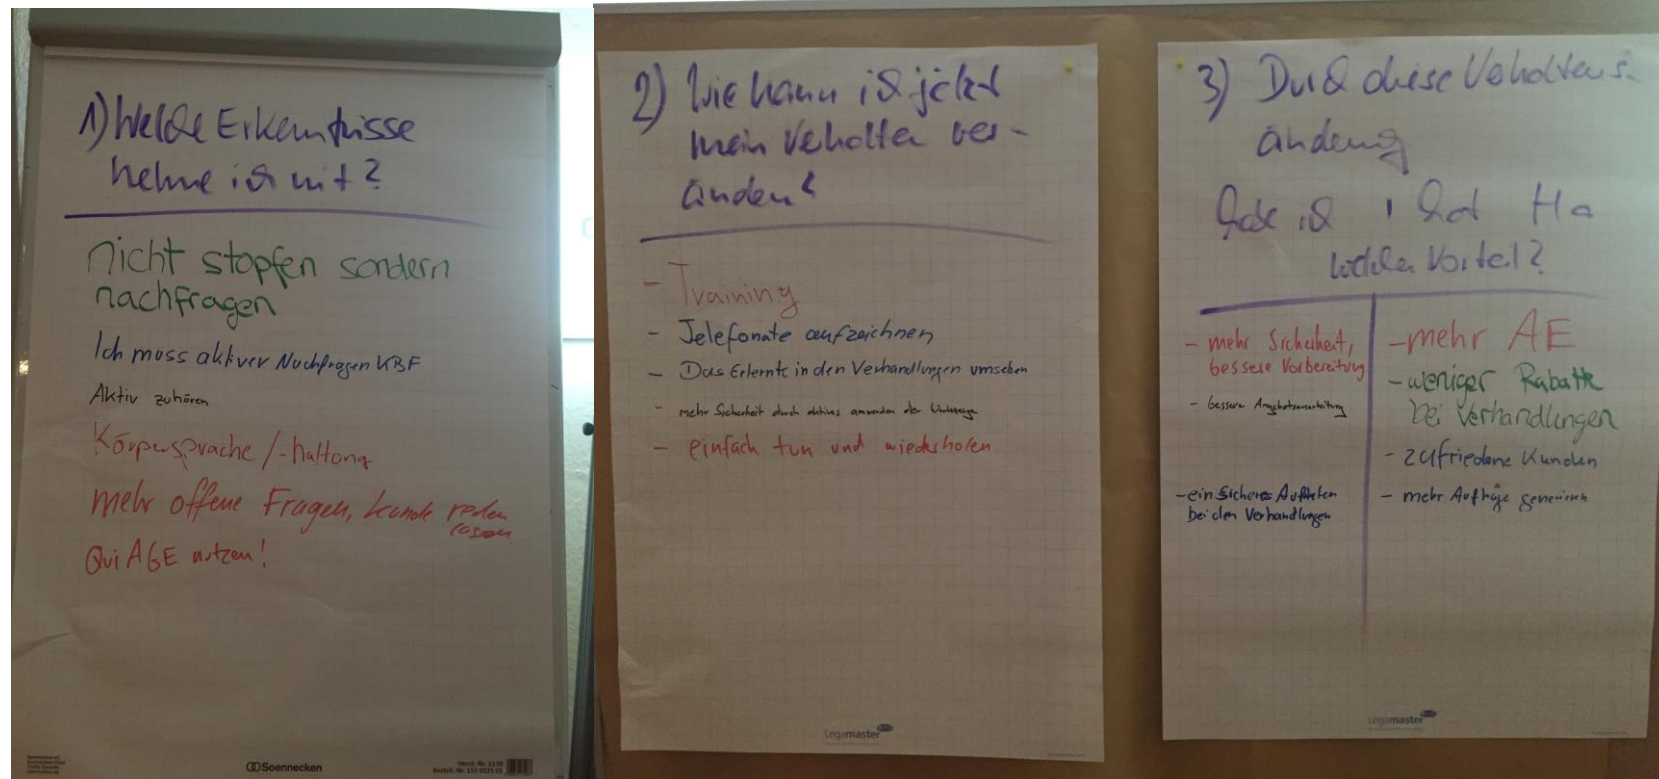 1) Welche Erkenntnisse
nehme ich mit?
nicht stopfen sondern
nachfragen
Ich muss aktiver Nachfragen KBF
Aktiv zuhören
Körpersprache / -haltung
mehr offene Fragen, Kunde reden
lassen
QuiAGE nutzen!
Soennecken
2) Wie kann ich jetzt
mein Verhalten ver-
ändern?
- Training
- Telefonate aufzeichnen
- Das Erlernte in den Verhandlungen umsehen
- mehr Sicherheit durch aktives anwenden der
- einfach tun und wiederholen
Legamaster
3) Durch diese Verhaltens-
änderung
habe ich | hat Ha
welchen Vorteil?
- mehr Sicherheit,
bessere Vorbereitung
- bessere
- ein sicheres Auftreten
bei den Verhandlungen
- mehr AE
- weniger Rabatte
bei Verhandlungen
- zufriedene Kunden
- mehr Aufträge generieren
Legamaster